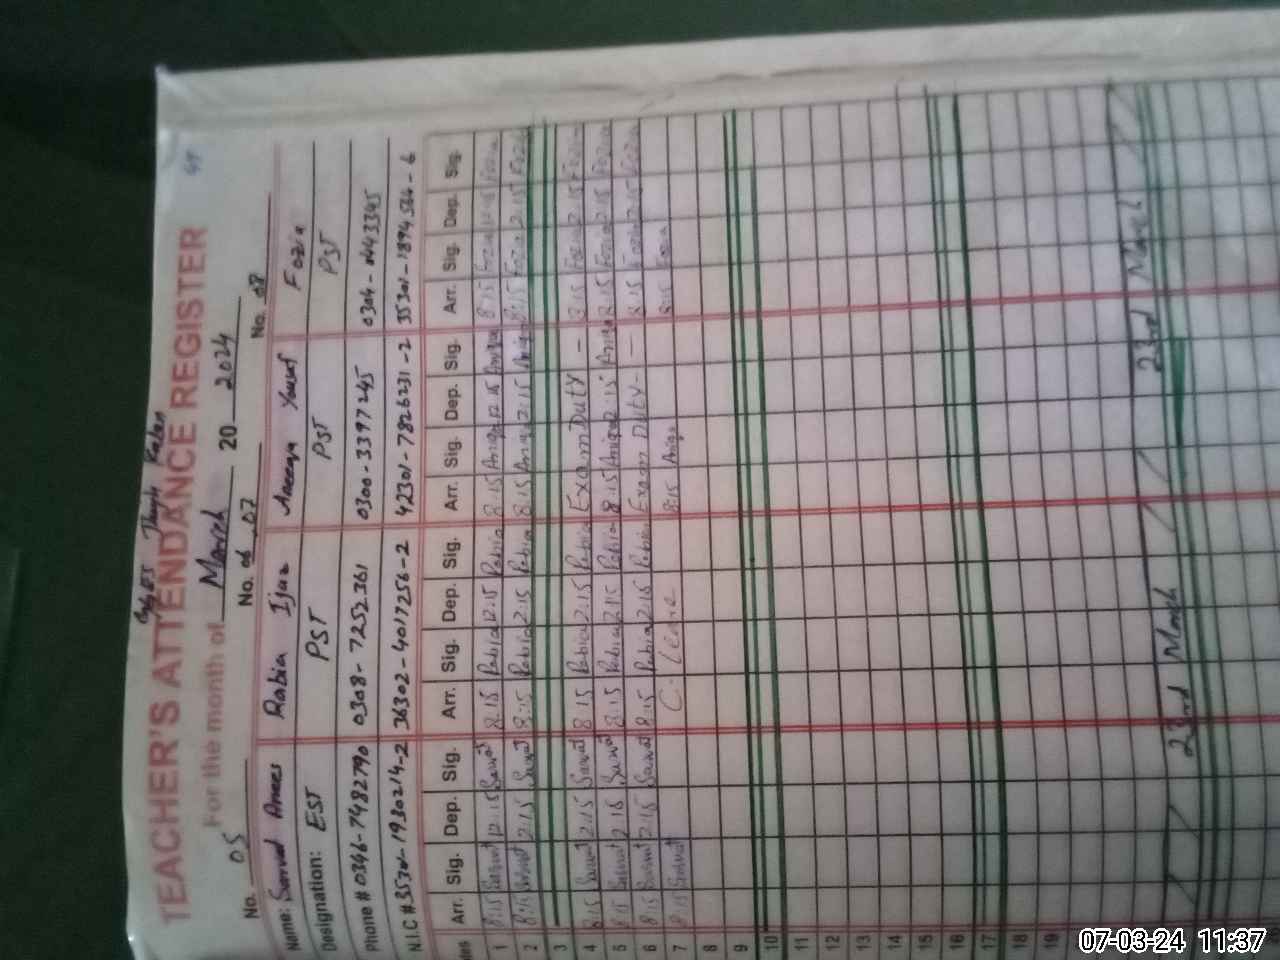 TEACHER'S ATTENDANCE REGISTER
For the month of March 20 2024
No. 05 No. 06 07 No. 08
Name: Rabia Ijaz Yousaf Fozia
Designation: EST PST PST PST
Phone # 0346-7482790 0308-7252361 0300-3397245 0304-
N.I.C # 36302-4017256-2 42301-7826231-2
Arr. Sig. Dep. Sig. Arr. Sig. Dep. Sig. Arr. Sig. Dep. Sig. Arr. Sig. Dep. Sig.
1 8:15 12:15 8:15 Rabia 12:15 Rabia 8:15 Aniqa 12:15 Aniqa 8:15 Fozia 12:15 Fozia
2 8:15 2:15 8:15 Rabia 2:15 Rabia 8:15 Aniqa 2:15 Aniqa 8:15 Fozia 2:15 Fozia
3
4 8:15 2:15 8:15 Rabia 2:15 Rabia Exam Duty — 8:15 Fozia 2:15 Fozia
5 8:15 2:15 8:15 Rabia 2:15 Rabia 8:15 Aniqa 2:15 Aniqa 8:15 Fozia 2:15 Fozia
6 8:15 2:15 8:15 Rabia 2:15 Rabia Exam Duty — 8:15 Fozia 2:15 Fozia
7 8:15 C. Leave 8:15 Aniqa 8:15 Fozia
8
9
10
11
12
13
14
15
16
17
18
19
23rd March 23rd March
07-03-24 11:37